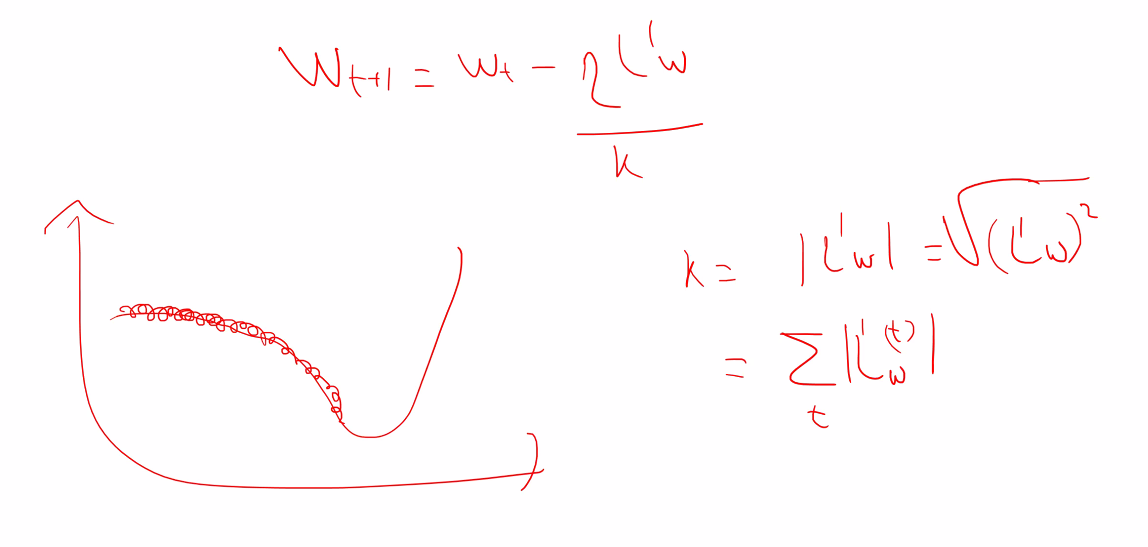 W_{t+1} = w_t - \frac{\eta L'_w}{k}
k = |L'_w| = \sqrt{(L'_w)^2}
= \sum_t |L'^{(t)}_w|